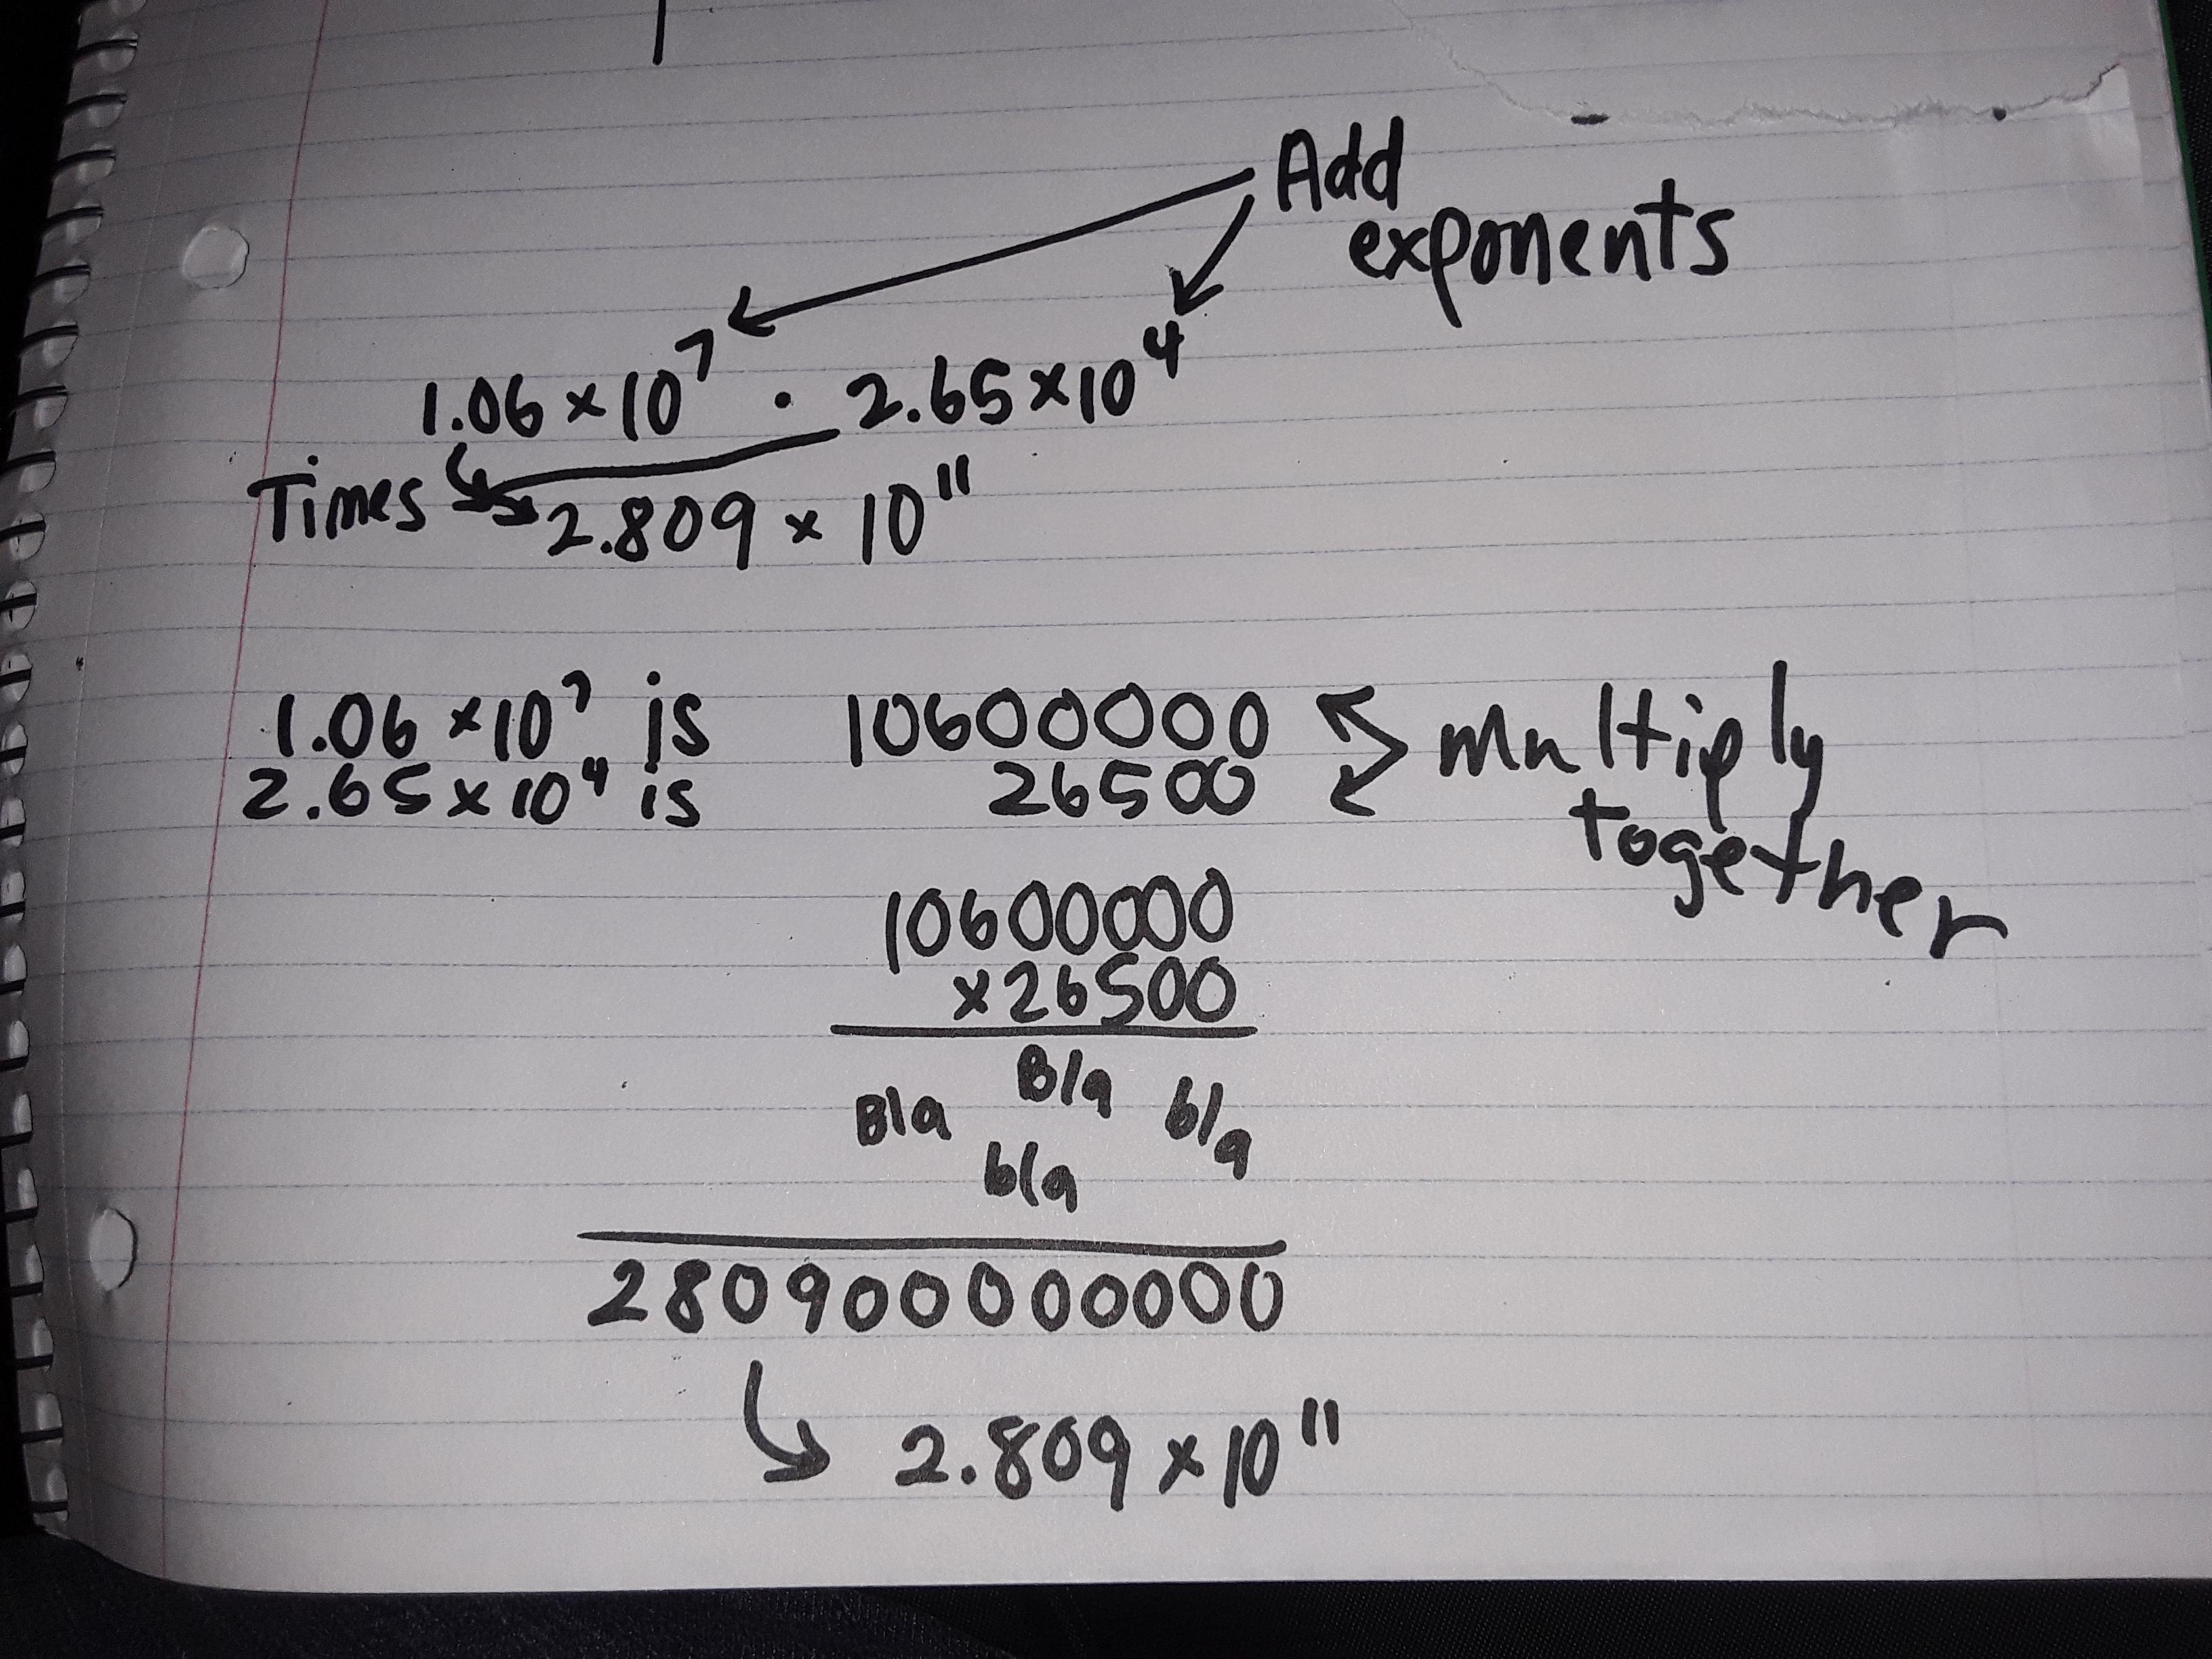 Add
exponents
1.06 × 10⁷ · 2.65 × 10⁴
Times 2.809 × 10¹¹
1.06 × 10⁷ is 10600000
2.65 × 10⁴ is 26500
Multiply
together
10600000
×26500
Bla Bla bla
bla
280900000000
2.809 × 10¹¹